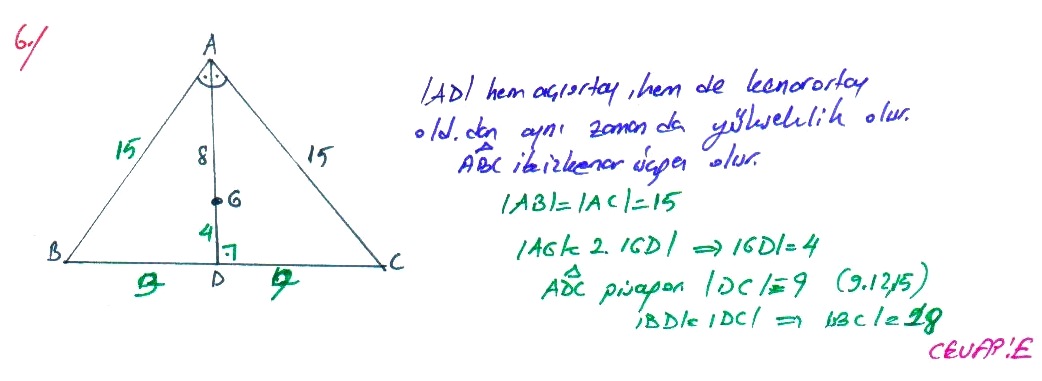 6./
A
15
8
15
G
4
B
D
C
9
9
|AD| hem açıortay, hem de kenarortay
old. dan aynı zaman da yükseklik olur.
ABC ikizkenar üçgen olur.
|AB|=|AC|=15
|AG|= 2. |GD| ⇒ |GD|=4
ADC pisagor |DC|=9 (9.12,15)
|BD|=|DC| ⇒ |BC|=18
CEVAP:E